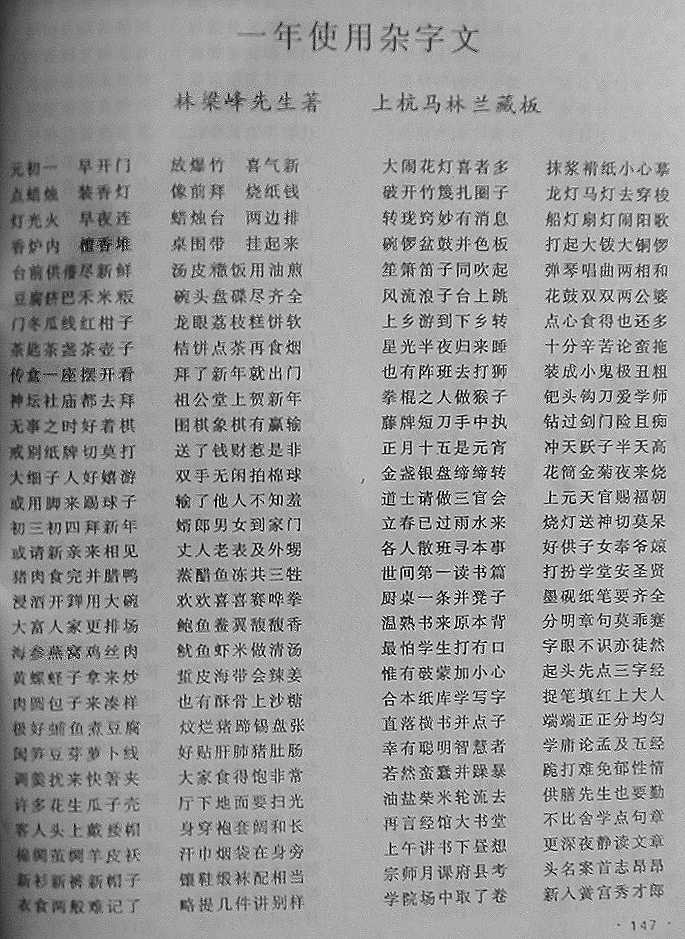 一年使用杂字文
林梁峰先生著 上杭马林兰藏板
元初一 早开门 放爆竹 喜气新
点蜡烛 装香灯 像前拜 烧纸钱
灯光火 早夜连 蜡烛台 两边排
香炉内 檀香堆 桌围带 挂起来
台前供僊尽新鲜 汤皮糍饭用油煎
豆腐糍巴禾米粄 碗头盘碟尽齐全
门冬瓜线红柑子 龙眼荔枝糕饼软
茶匙茶盏茶壶子 桔饼点茶再食烟
传盒一座摆开看 拜了新年就出门
神坛社庙都去拜 祖公堂上贺新年
无事之时好着棋 围棋象棋有赢输
戒别纸牌切莫打 送了钱财惹是非
大细子人好嬉游 双手无闲拍棉球
或用脚来踢球子 输了他人不知羞
初三初四拜新年 婿郎男女到家门
或请新亲来相见 丈人老表及外甥
猪肉食完并腊鸭 蒸醋鱼冻共三牲
浸酒开鐸用大碗 欢欢喜喜赛哗拳
大富人家更排场 鲍鱼鲞翼馥馥香
海参燕窝鸡丝肉 鱿鱼虾米做清汤
黄螺蛏子拿来炒 蜇皮海带会辣姜
肉圆包子来凑样 也有酥骨上沙糖
极好鯆鱼煮豆腐 炆烂猪蹄锡盘张
闽笋豆芽萝卜线 好贴肝肺猪肚肠
调羹扰来快箸夹 大家食得饱非常
许多花生瓜子壳 厅下地面要扫光
客人头上戴缕帽 身穿袍套阔和长
棉绸茧绸羊皮袄 汗巾烟袋在身旁
新衫新裤新帽子 镶鞋缎袜配相当
衣食两般难记了 略提几件讲别样
大闹花灯喜者多 抹浆褙纸小心摹
破开竹篾扎圈子 龙灯马灯去穿梭
转珑窍妙有消息 船灯扇灯闹阳歌
碗锣盆鼓并色板 打起大钹大铜锣
笙箫笛子同吹起 弹琴唱曲两相和
风流浪子台上跳 花鼓双双两公婆
上乡游到下乡转 点心食得也还多
星光半夜归来睡 十分辛苦论蛮拖
也有阵班去打狮 装成小鬼极丑粗
拳棍之人做猴子 钯头钩刀爱学师
藤牌短刀手中执 钻过剑门险且痴
正月十五是元宵 冲天跃子半天高
金盏银盘缔缔转 花筒金菊夜来烧
道士请做三官会 上元天官赐福朝
立春已过雨水来 烧灯送神切莫呆
各人散班寻本事 好供子女奉爷㜷
世间第一读书篇 打扮学堂安圣贤
厨桌一条并凳子 墨砚纸笔要齐全
温熟书来原本背 分明章句莫乖蹇
最怕学生打冇口 字眼不识亦徒然
惟有破蒙加小心 起头先点三字经
合本纸库学写字 捉笔填红上大人
直落横书并点子 端端正正分均匀
幸有聪明智慧者 学庸论孟及五经
若然蛮蠢并躁暴 跪打难免郁性情
油盐柴米轮流去 供膳先生也要勤
再言经馆大书堂 不比舍学点句章
上午讲书下昼想 更深夜静读文章
宗师月课府县考 头名案首志昂昂
学院场中取了卷 新入黉宫秀才郎
·147·